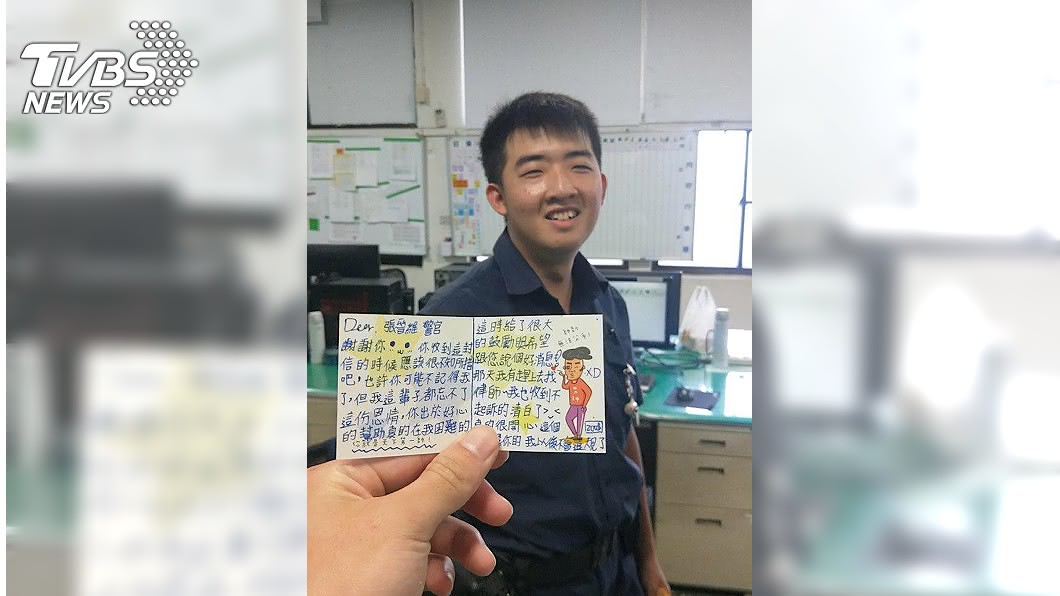 TVBS
NEWS
Dear. 張晉維 警官
謝謝你 你收到這封
信的時候應該很不知所措
吧，也許你可能不記得我
了，但我這輩子都忘不了
這份恩情，你出於好心
的幫助真的在我困難的
這時給了很大
的鼓勵呢希望
跟您說個好消息
那天我有趕上去找
律師、我也收到不
起訴的清白了>_<
真的很開心這個
你的 我以後不會違規了
XD